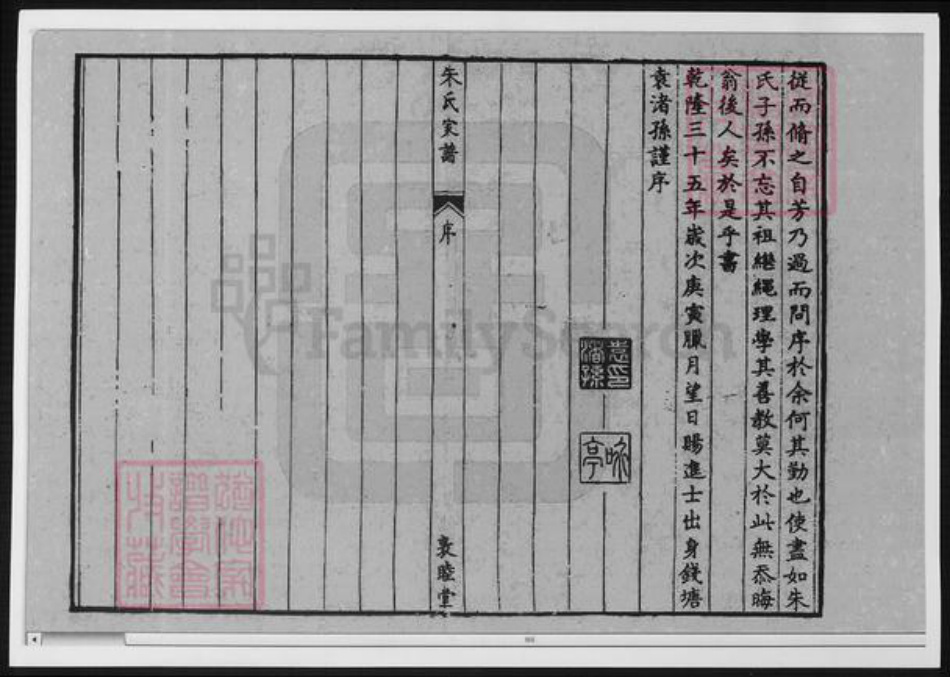 從而脩之自芳乃過而問序於余何其勤也使盡如朱
氏子孫不忘其祖繼繩理學其善教莫大於此無忝晦
翁後人矣於是乎書
乾隆三十五年歲次庚寅臘月望日賜進士出身錢塘
袁渚孫謹序
袁印
渚孫
咏亭
朱氏家譜
序
敦睦堂
譜學會
收藏
FamilySearch